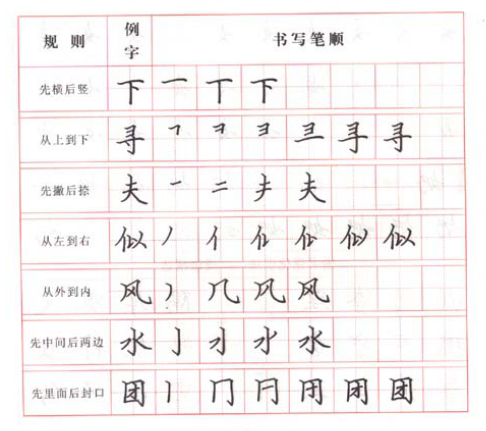 规 则 例字 书写笔顺
先横后竖 下 一 丅 下
从上到下 寻 ㇕ コ 彐 寻 寻
先撇后捺 夫 一 二 夫
从左到右 似 丿 亻 似
从外到内 风 丿 几 风 风
先中间后两边 水 亅 水
先里面后封口 团 丨 冂 团